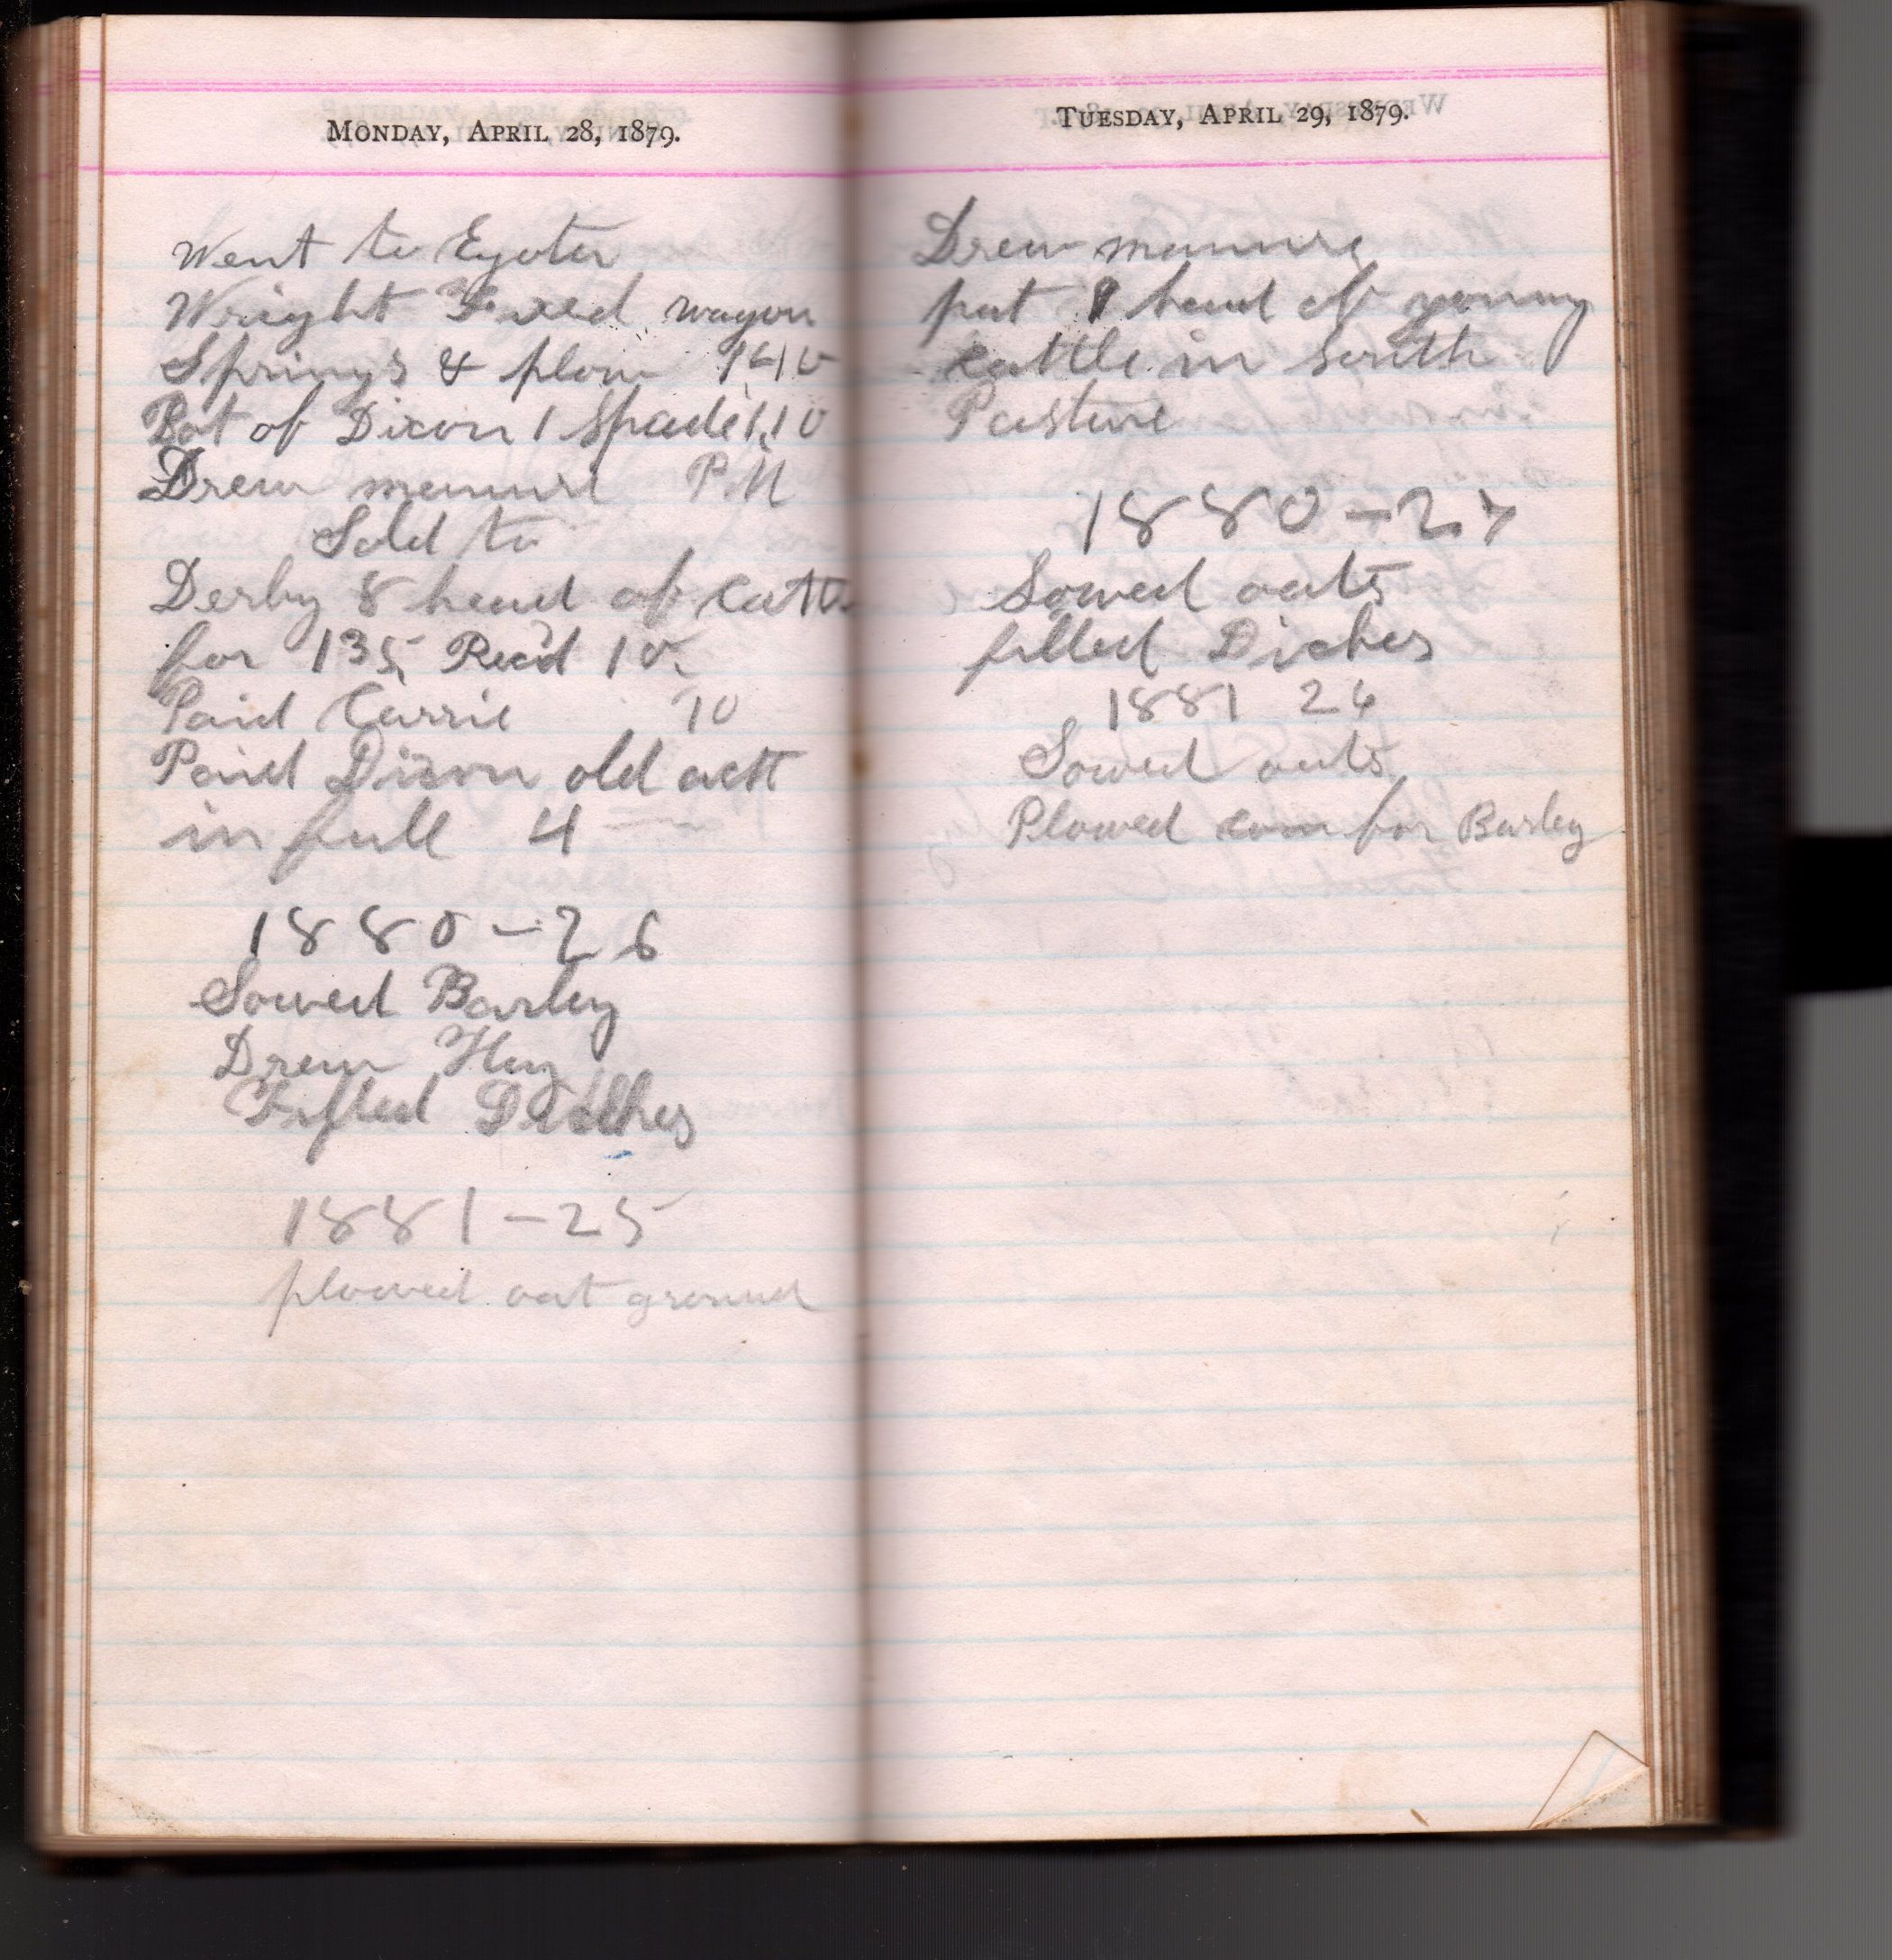 MONDAY, APRIL 28, 1879.
Went to Eyota
Wright Fixed wagon
Springs & plow
Bot of Dixon 1 Spade 1.10
Drew manure P.M
Sold to
Derby 8 head of Cattle
for 135 Rec'd 10.
Paid Carrie 10
Paid Dixon old actt
in full 4 —
1880-26
Sowed Barley
Drew Hay
Filled Ditches
1881-25
plowed oat ground
TUESDAY, APRIL 29, 1879.
Drew manure
put 9 head of young
cattle in South
Pasture
1880-27
Sowed oats
filled Diches
1881 26
Sowed oats
Plowed corn for Barley